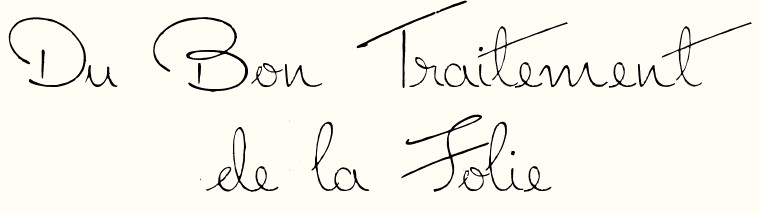 Du Bon Traitement
de la Folie